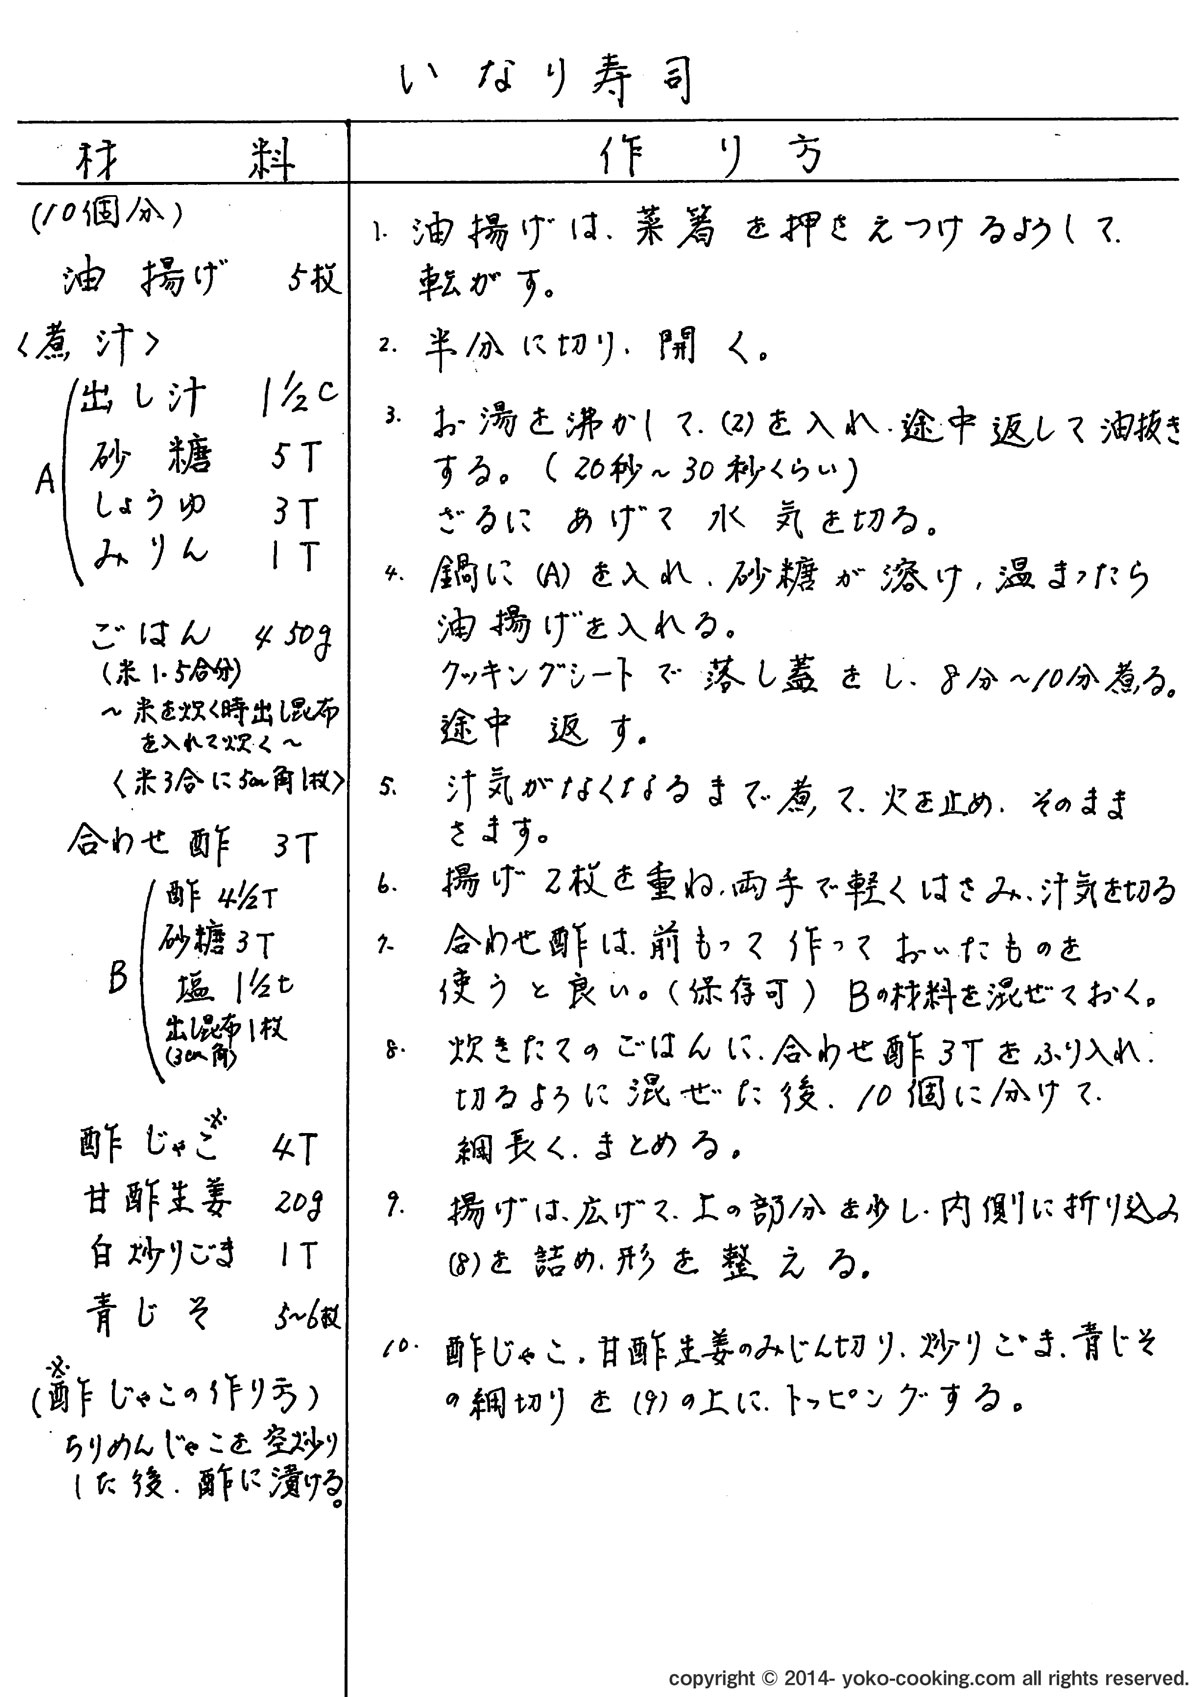 いなり寿司
材料
(10個分)
油揚げ 5枚
〈煮汁〉
A
出し汁 1 1/2C
砂糖 5T
しょうゆ 3T
みりん 1T
ごはん 450g
(米1.5合分)
〜米を炊く時出し昆布
を入れて炊く〜
〈米3合に5cm角1枚〉
合わせ酢 3T
B
酢 4 1/2T
砂糖 3T
塩 1 1/2t
出し昆布1枚
(3cm角)
酢じゃこ※ 4T
甘酢生姜 20g
白炒りごま 1T
青じそ 5〜6枚
(※酢じゃこの作り方)
ちりめんじゃこを空炒り
した後、酢に漬ける。
作り方
1. 油揚げは、菜箸を押さえつけるようして、
転がす。
2. 半分に切り、開く。
3. お湯を沸かして、(2)を入れ、途中返して油抜き
する。(20秒〜30秒くらい)
ざるにあげて水気を切る。
4. 鍋に(A)を入れ、砂糖が溶け、温まったら
油揚げを入れる。
クッキングシートで落し蓋をし、8分〜10分煮る。
途中返す。
5. 汁気がなくなるまで煮て、火を止め、そのまま
さます。
6. 揚げ2枚を重ね、両手で軽くはさみ、汁気を切る
7. 合わせ酢は、前もって作っておいたものを
使うと良い。(保存可) Bの材料を混ぜておく。
8. 炊きたてのごはんに、合わせ酢3Tをふり入れ、
切るように混ぜた後、10個に分けて、
細長く、まとめる。
9. 揚げは、広げて、上の部分を少し、内側に折り込み
(8)を詰め、形を整える。
10. 酢じゃこ、甘酢生姜のみじん切り、炒りごま、青じそ
の細切りを(9)の上に、トッピングする。
copyright © 2014- yoko-cooking.com all rights reserved.